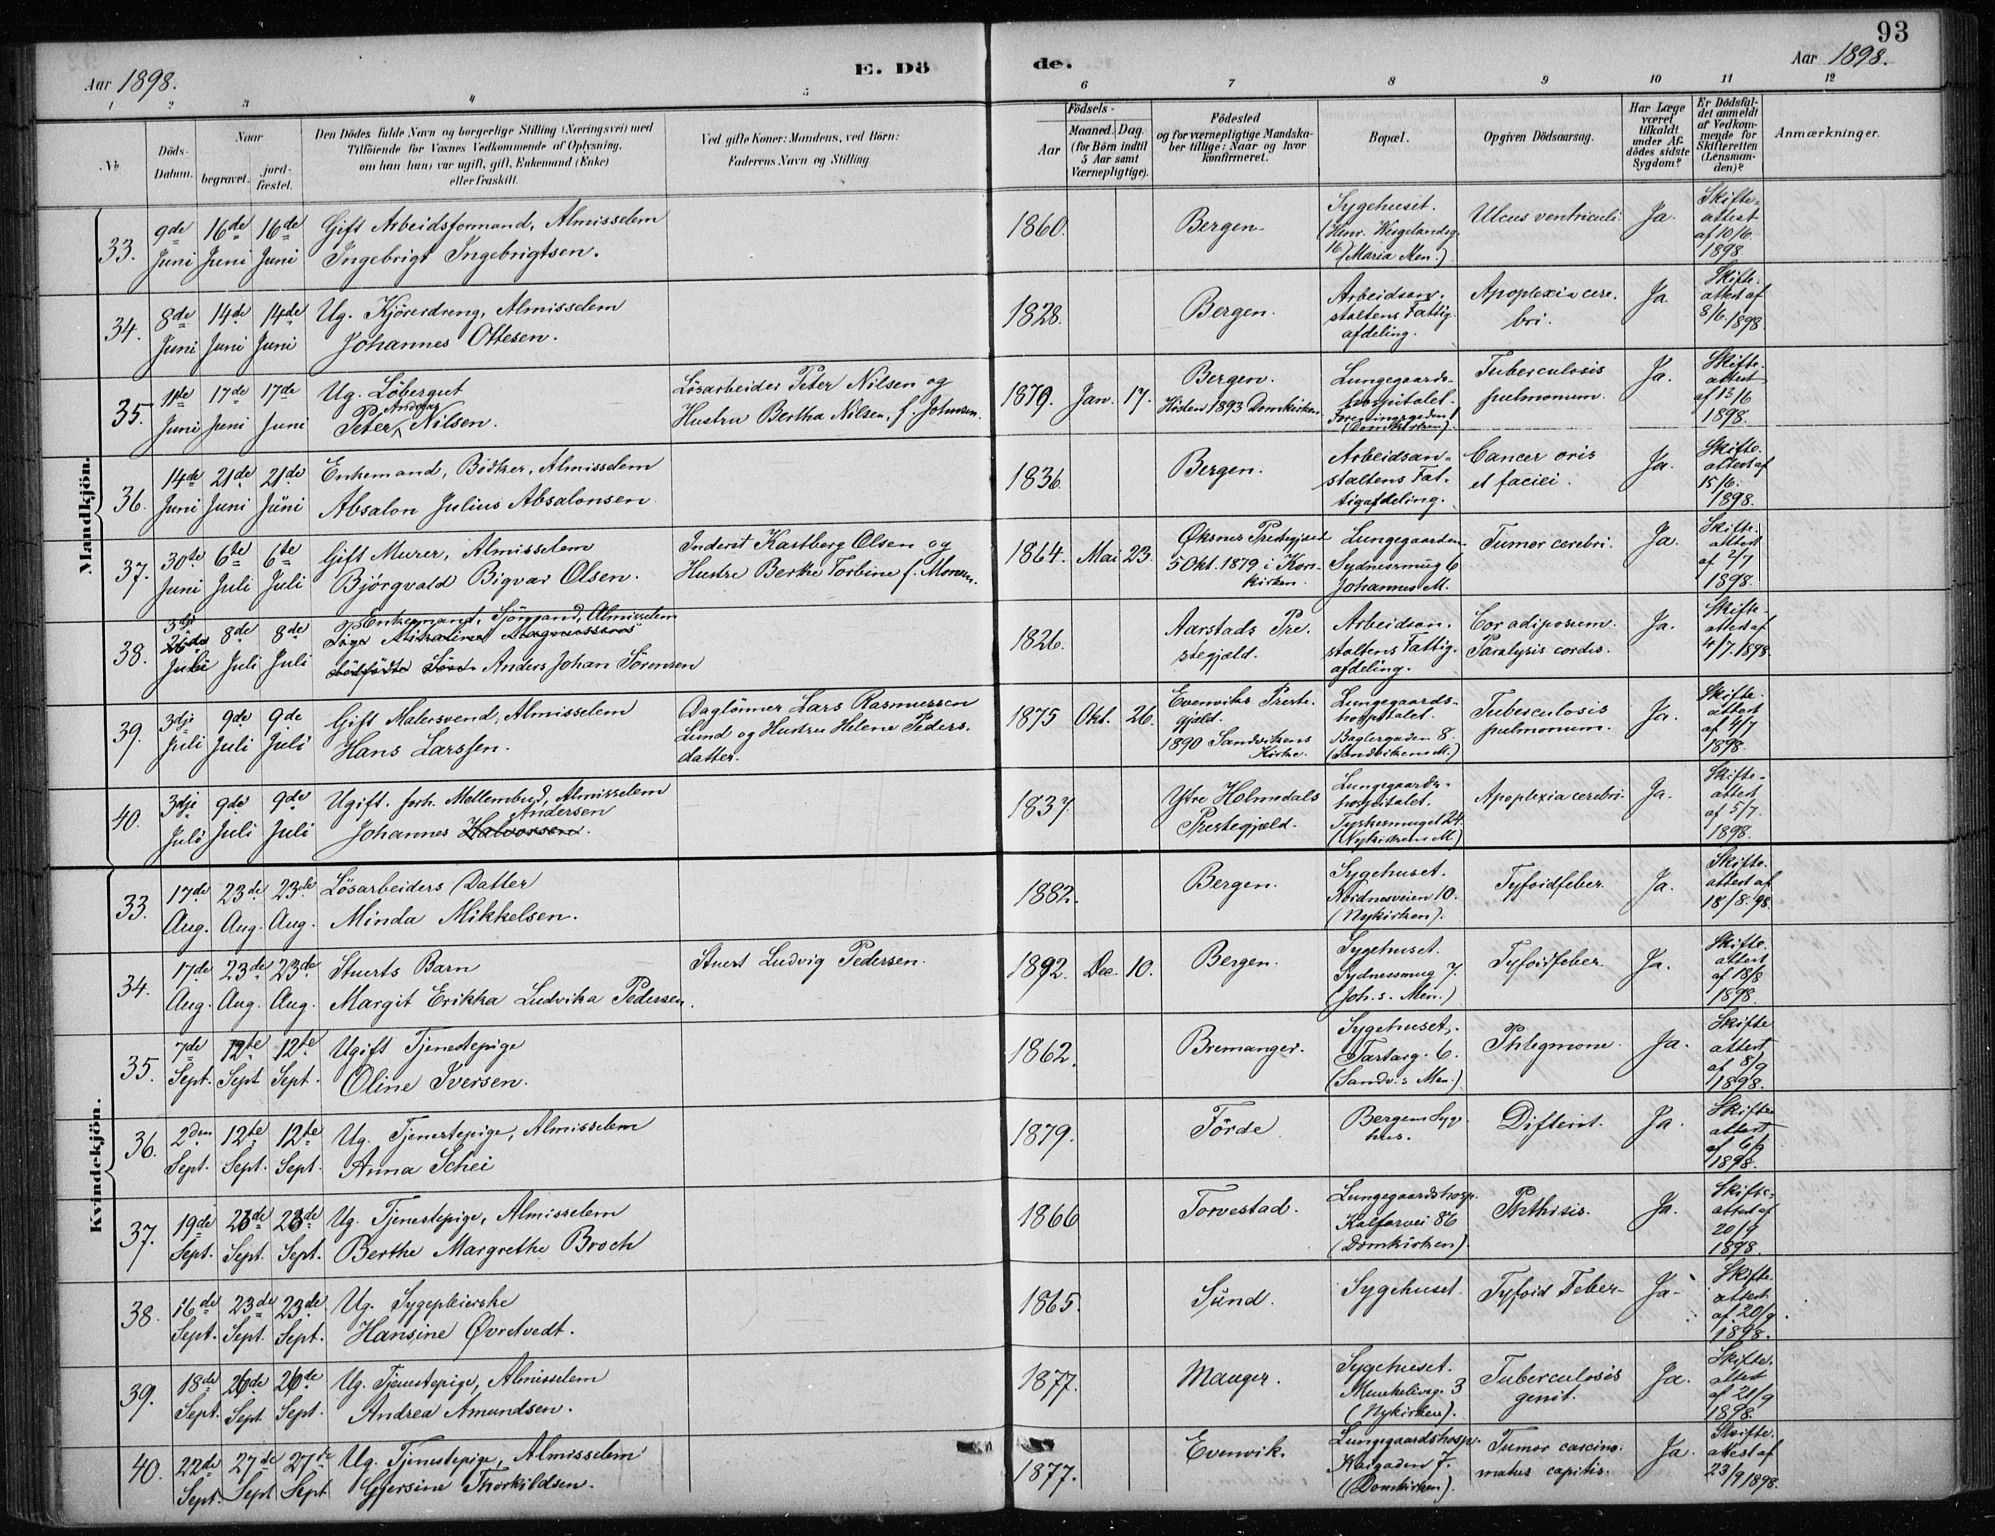 93
Aar 1898.
E. Dö
de.
Aar 1898.
1 2 3 4 5 6 7 8 9 10 11 12
No.
Döds-Datum.
Naar
begravet.
jord-fæstet.
Den Dödes fulde Navn og borgerlige Stilling (Næringsvei) med
Tilföiende for Voxnes Vedkommende af Oplysning,
om han (hun) var ugift, gift, Enkemand (Enke)
eller fraskilt.
Ved gifte Koner: Mandens, ved Börn:
Faderens Navn og Stilling
Födsels-
Aar
Maaned. Dag.
(for Börn indtil
5 Aar samt
Værnepligtige).
Födested
og for værnepligtige Mandska-
ber tillige: Naar og hvor
konfirmeret.
Bopæl.
Opgiven Dödsaarsag.
Har Læge
været
tilkaldt
under Af-
dödes sidste
Sygdom?
Er Dödsfal-
det anmeldt
af Vedkom-
mende for
Skifteretten
(Lensman-
den)?
Anmærkninger.
Mandkjön.
33. 9de Juni 16de Juni 16de Juni
Gift Arbeidsformand, Almisselem
Ingebrigt Ingebrigtsen.
1860. Bergen.
Sygehuset.
(Henr. Wergelandsg.
16) (Maria Men.)
Ulcus ventriculi Ja.
Skifte-
attest
af 10/6
1898.
34. 8de Juni 14de Juni 14de Juni
Ug. Kjöredreng, Almisselem
Johannes Ottesen.
1828. Bergen.
Arbeidsan-
staltens Fattig-
afdeling.
Apoplexia cere-
bri.
Ja
Skifte-
attest af
8/6 1898.
35. 11te Juni 17de Juni 17de Juni
Ug. Löbergut
Peter Andreas Nilsen.
Lösarbeider Peter Nilsen og
Hustru Bertha Nilsen, f. Johnsen.
1879. Jan. 17.
Bergen.
Hösten 1893 Domkirken
Lungegaards-
hospitalet.
Foreningsgaden 1
(Domkirken).
Tuberculosis
pulmonum.
Ja.
Skifte-
attest
af 13/6
1898.
36. 14de Juni 21de Juni 21de Juni
Enkemand, Bödker, Almisselem
Absalon Julius Absalonsen
1836. Bergen.
Arbeidsan-
staltens Fat-
tigafdeling.
Cancer oris
et faciei.
Ja.
Skifte-
attest af
15/6.
1898.
37. 30te Juni 6te Juli 6te Juli
Gift Murer, Almisselem
Björgvald Bigvar Olsen.
Inderst Kastberg Olsen og
Hustru Berthe Torbine f. Monsen.
1864. Mai 23.
Öksnes Prestegjæld
5 Okt. 1879 i Kors-
kirken.
Lungegaarden
Sydnessmug 6
Johannes M.
Tumor cerebri. Ja.
Skifte-
attest
af 2/7
1898.
38. 3dje Juli 8de Juli 8de Juli
Enkemand, Sjömand, Almisselem
Anders Johan Sörensen
1826.
Aarstads Pre-
stegjæld.
Arbeidsan-
staltens Fattig-
afdeling.
Cor adiposum.
Paralysis cordis.
Ja.
Skifte-
attest af
4/7. 1898.
39. 3dje Juli 9de Juli 9de Juli
Gift Malersvend, Almisselem
Hans Larssen.
Daglönner Lars Rasmussen
Lund og Hustru Helene Peders-
datter.
1875 Okt. 26.
Evenviks Preste-
gjæld.
1890 Sandvikens
Kirke.
Lungegaards-
hospitalet.
Baglergaden 8.
(Sandvikens M.)
Tuberculosis
pulmonum.
Ja.
Skifte-
attest
af 4/7
1898.
40. 3dje Juli 9de Juli 9de Juli
Ugift. forh. Mellembud, Almisselem
Andersen
Johannes Halvorssen.
1837
Ytre Holmedals
Prestegjæld.
Lungegaards-
hospitalet.
Tyskesmuget 24.
(Nykirkens M.)
Apoplexia cerebri. Ja.
Skifte-
attest
af 5/7.
1898.
Kvindekjön.
33. 17de Aug. 23de Aug. 23de Aug.
Lösarbeiders Datter
Minda Mikkelsen.
1882. Bergen.
Sygehuset.
Nordnesveien 10.
(Nykirken).
Tyfoidfeber Ja.
Skifte-
attest af
18/8. 98.
34. 17de Aug. 23de Aug. 23de Aug.
Stuerts Barn
Margit Erikka Ludvika Pedersen.
Stuert Ludvig Pedersen.
1892. Dec. 10. Bergen.
Sygehuset.
Sydnessmug 7.
(Joh.s. Men.)
Tyfoidfeber Ja.
Skifte-
attest
af 18/8
1898.
35. 7de Sept. 12te Sept 12te Sept.
Ugift Tjenestepige
Oline Iversen.
1862. Bremanger.
Sygehuset.
Tartarg. 6.
(Sandv.s Men.)
Phlegmone. Ja.
Skifte
attest
af 8/9
1898.
36. 2den Sept. 12te Sept. 12te Sept.
Ug. Tjenestepige, Almisselem
Anna Schei
1879. Förde
Bergens Syge-
hus.
Difterit. Ja.
Skifte-
attest
af 6/9
1898.
37. 19de Sept. 23de Sept. 23de Sept.
Ug. Tjenestepige, Almisselem
Berthe Margrethe Broch
1866 Torvestad.
Lungegaardshosp.
Kalfarvei 86
(Domkirken).
Phthisis. Ja.
Skifte-
attest af
20/9
1898.
38. 16de Sept. 23de Sept. 23de Sept.
Ug. Sygepleierske
Hansine Øvretvedt.
1865. Sund. Sygehuset. Tyfoid Feber Ja.
Skifte
attest
af 20/9.
1898.
39. 18de Sept. 26de Sept. 26de Sept.
Ug. Tjenestepige, Almisselem
Andrea Amundsen.
1877. Manger.
Sygehuset.
Munkelivsg. 3
(Nykirken).
Tuberculosis
genit.
Ja.
Skifte-
attest
af 21/9
1898.
40. 22de Sept. 27de Sept 27de Sept
Ug. Tjenestepige, Almisselem
Gjersine Thorkildsen.
1877. Evenvik.
Lungegaardshosp.
Kaigaden 7.
(Domkirken).
Tumor carcino-
matus capitis.
Ja.
Skifte-
attest af
23/9 1898.